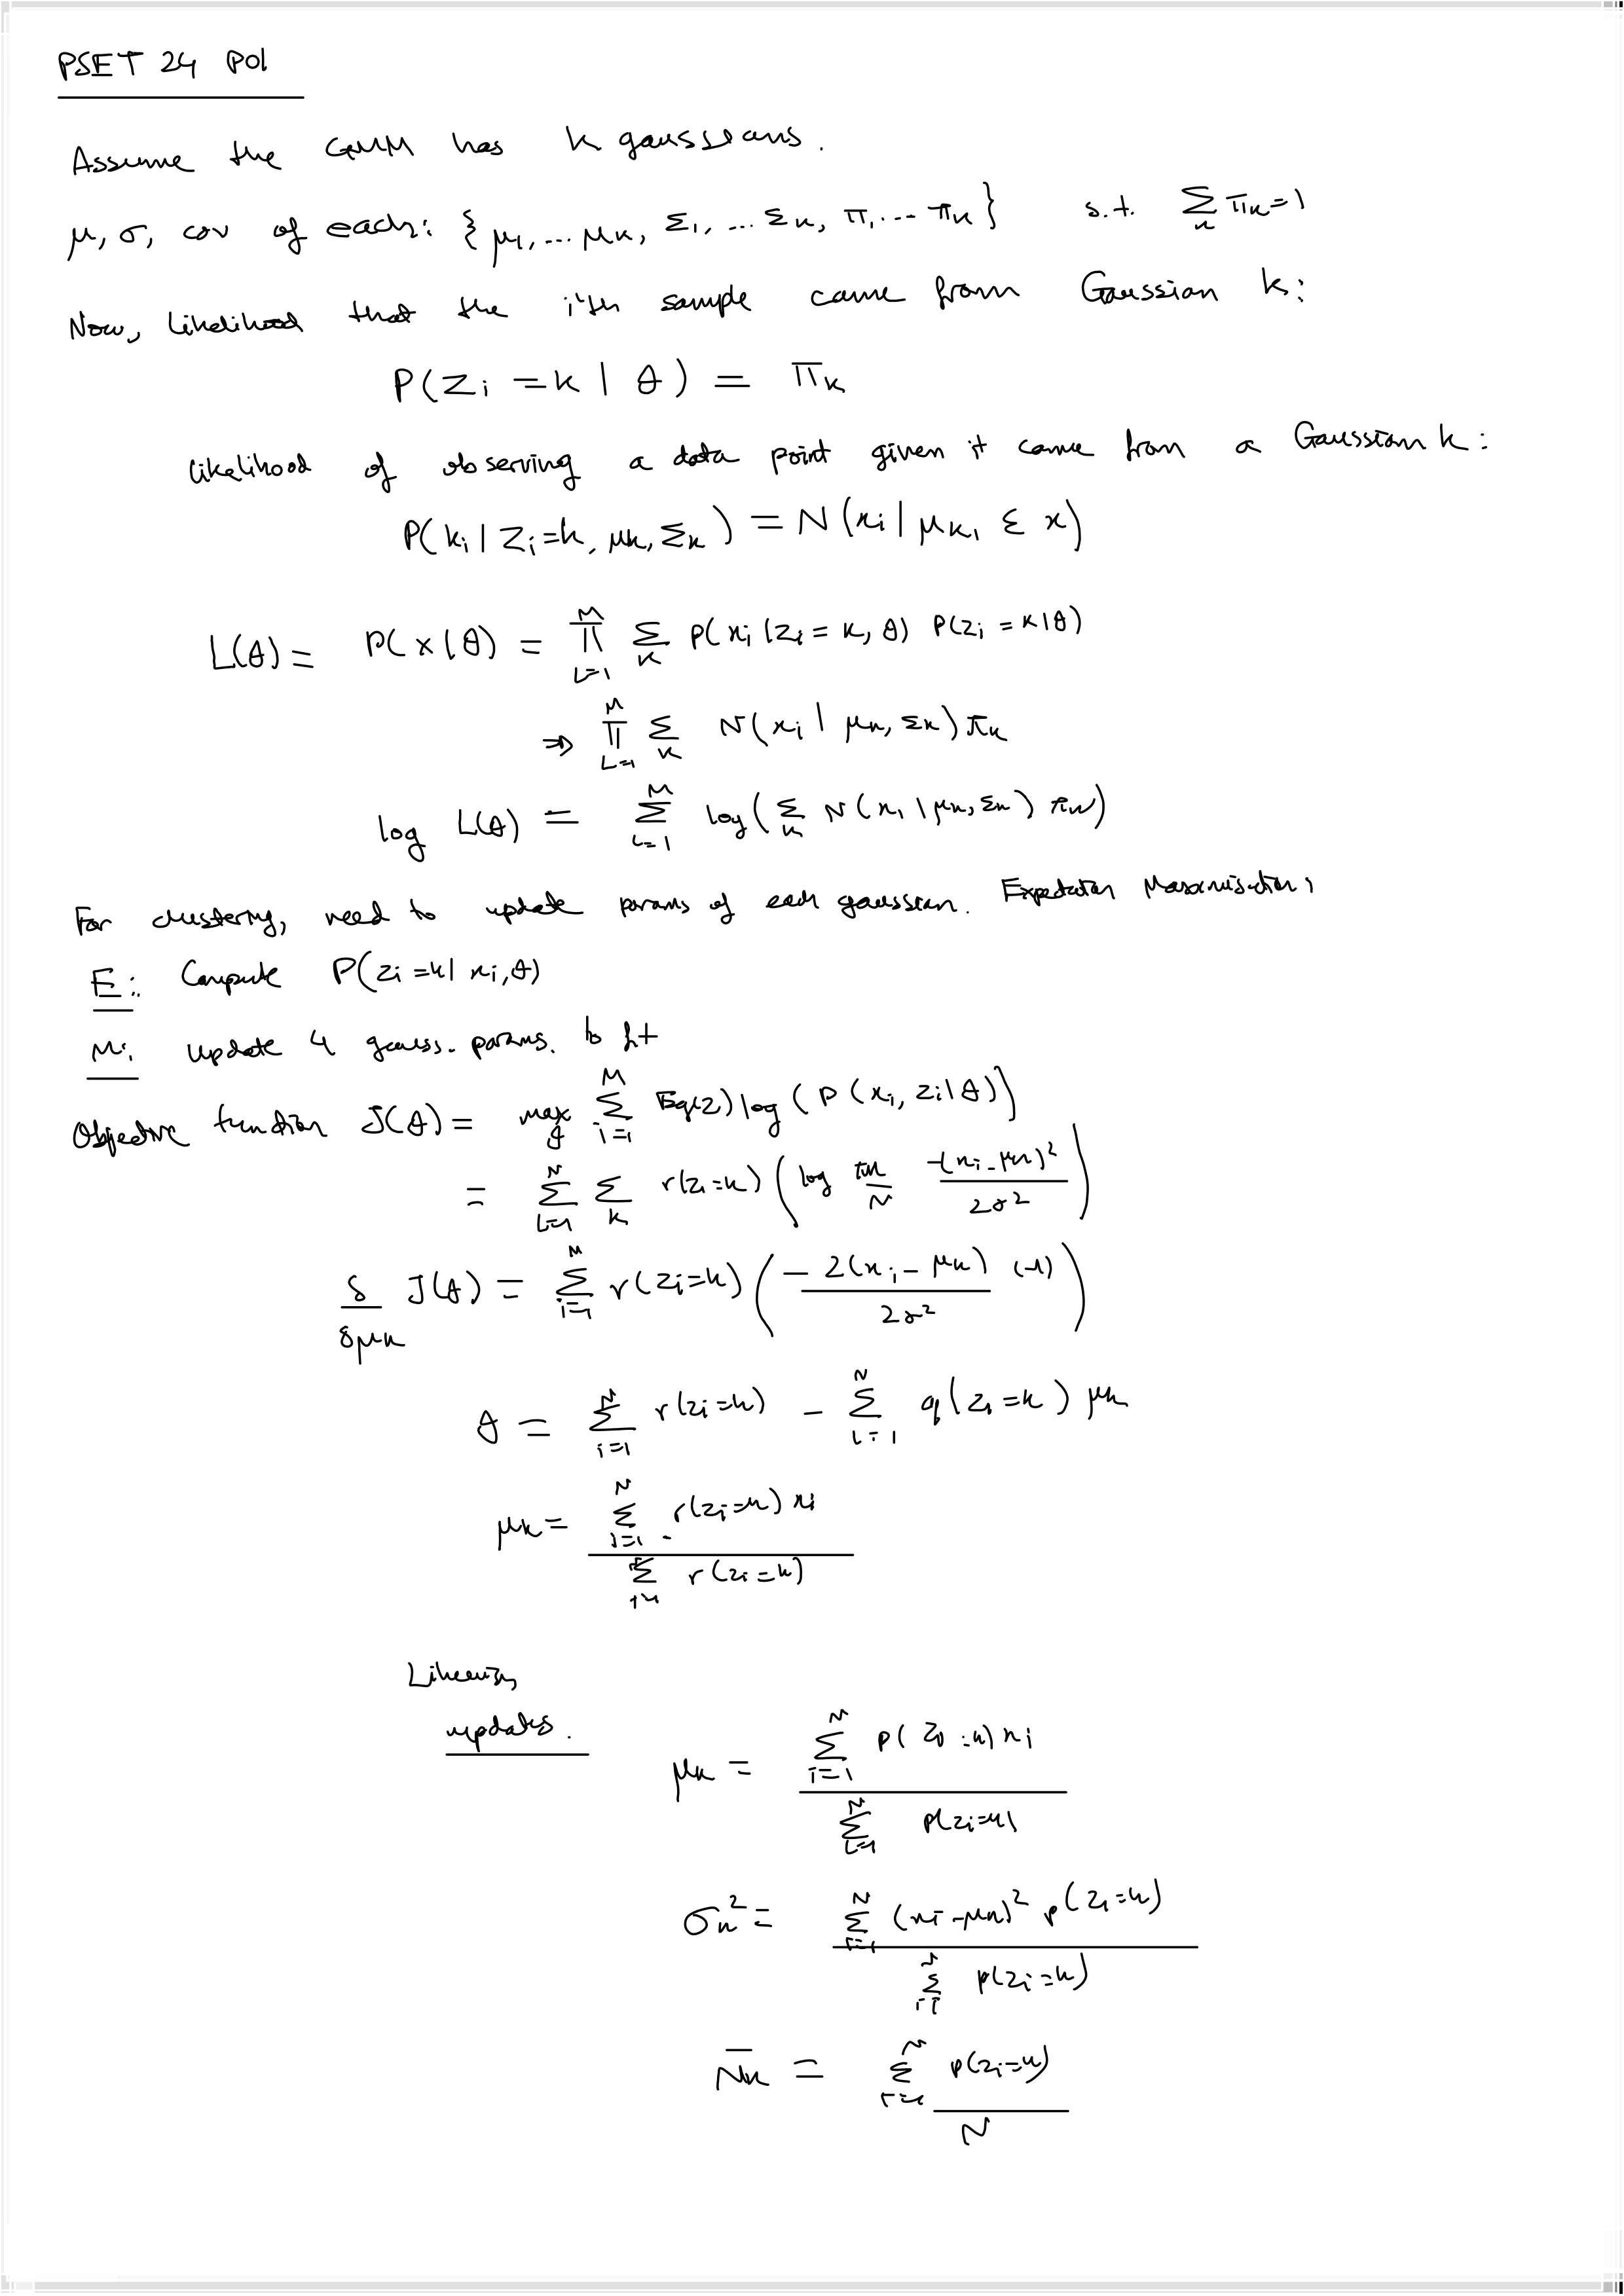 PSET 24 P01
Assume the GMM has k gaussians.
μ, σ, cov of each: {μ₁, ... μₖ, Σ₁, ... Σₖ, π₁ ... πₖ} s.t. Σₖ πₖ = 1
Now, likelihood that the i'th sample came from Gaussian k:
P(zᵢ = k | θ) = πₖ
likelihood of observing a data point given it came from a Gaussian k:
P(kᵢ | zᵢ = k, μₖ, Σₖ) = N(xᵢ | μₖ, Σ x)
L(θ) = P(x | θ) = ∏_{i=1}^{M} Σₖ p(xᵢ | zᵢ = k, θ) P(zᵢ = k | θ)
⇒ ∏_{i=1}^{M} Σₖ N(xᵢ | μₖ, Σₖ) πₖ
log L(θ) = Σ_{i=1}^{M} log(Σₖ N(xᵢ | μₖ, Σₖ) πₖ)
For clustering, need to update params of each gaussian. Expectation Maximisation:
E: Compute P(zᵢ = k | xᵢ, θ)
M: update 4 gauss. params. to fit
Objective function J(θ) = max_θ Σ_{i=1}^{M} E_{q(z)} log(P(xᵢ, zᵢ | θ))
= Σ_{i=1}^{N} Σₖ r(zᵢ = k) (log πₖ/N -(xᵢ - μₖ)²/2σ²)
δ/δμₖ J(θ) = Σ_{i=1}^{N} r(zᵢ = k) (- 2(xᵢ - μₖ)/2σ² (-1))
θ = Σ_{i=1}^{N} r(zᵢ = k) - Σ_{i=1}^{N} q(zᵢ = k) μₖ
μₖ = Σ_{i=1}^{N} r(zᵢ = k) xᵢ / Σ_{i=1}^{N} r(zᵢ = k)
Likewise,
updates.
μₖ = Σ_{i=1}^{N} p(zᵢ = k) xᵢ / Σ_{i=1}^{N} p(zᵢ = k)
σₖ² = Σ_{i=1}^{N} (xᵢ - μₖ)² p(zᵢ = k) / Σ_{i=1}^{N} p(zᵢ = k)
N̄ₖ = Σ_{i=1}^{N} p(zᵢ = k) / N